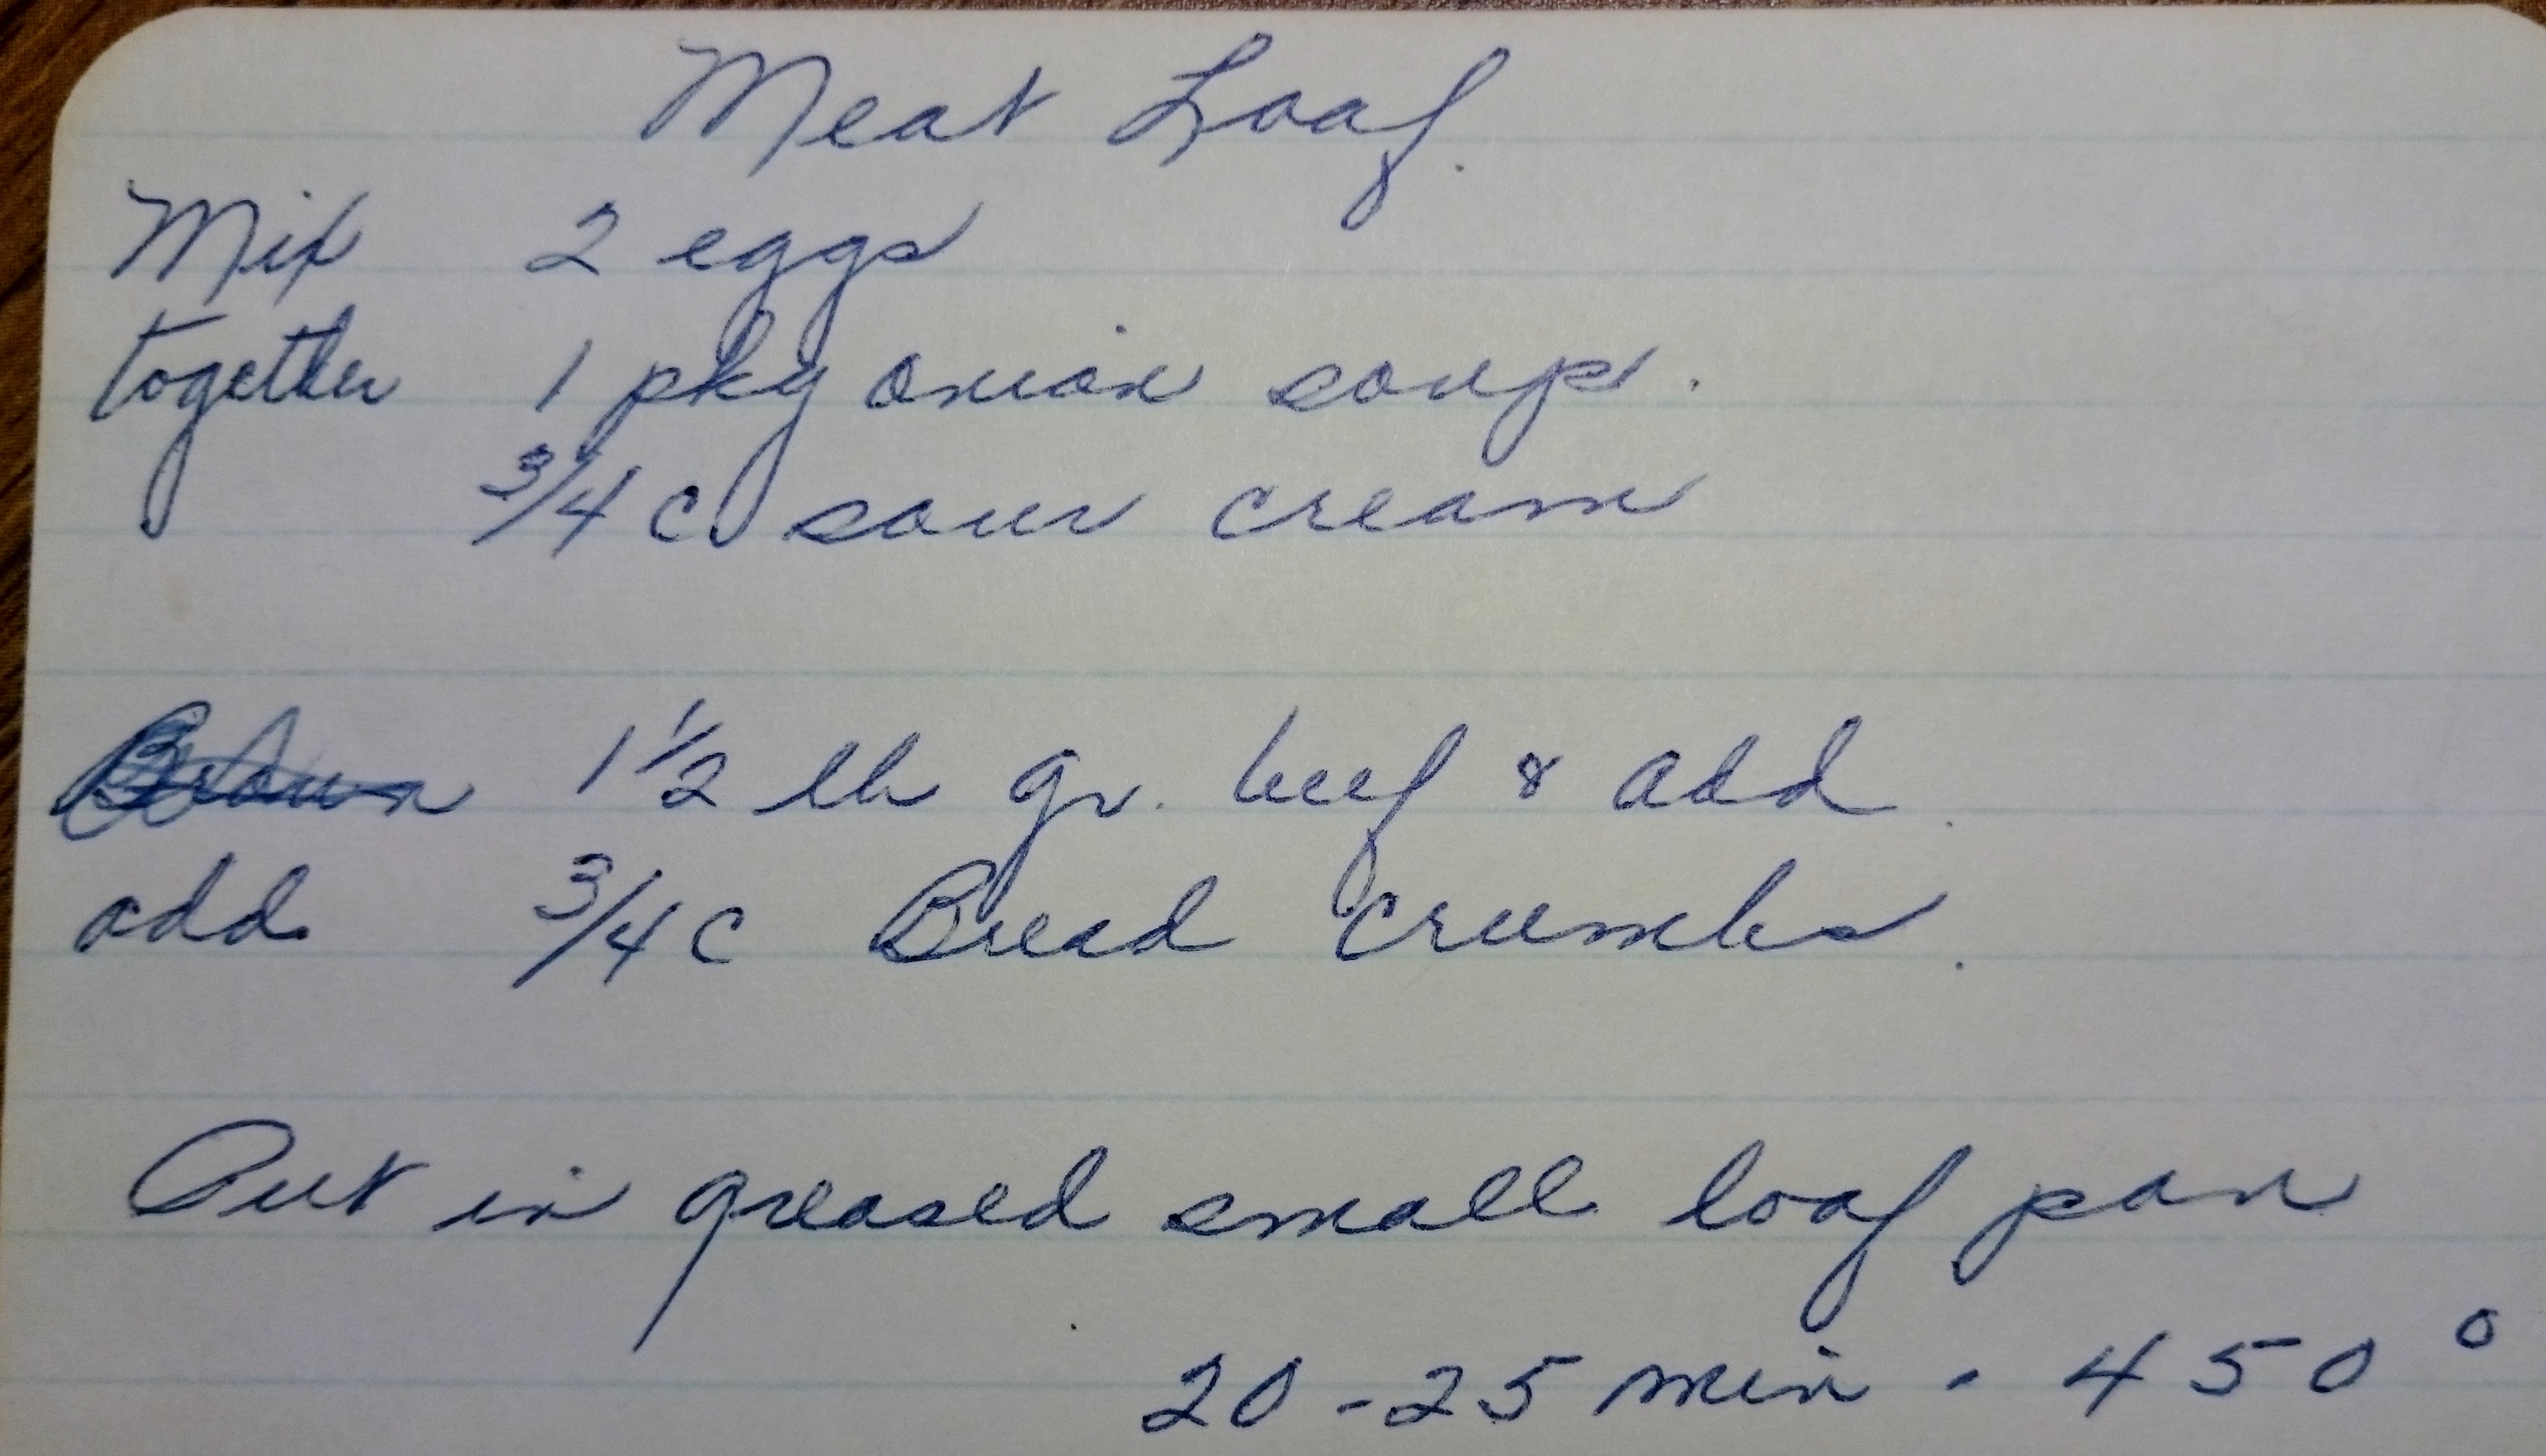 Meat Loaf.
Mix 2 eggs
together 1 pkg onion soup.
3/4 c sour cream
Brown 1 1/2 lb gr. beef & add
add 3/4 c Bread crumbs.
Put in greased small loaf pan
20-25 min - 450°